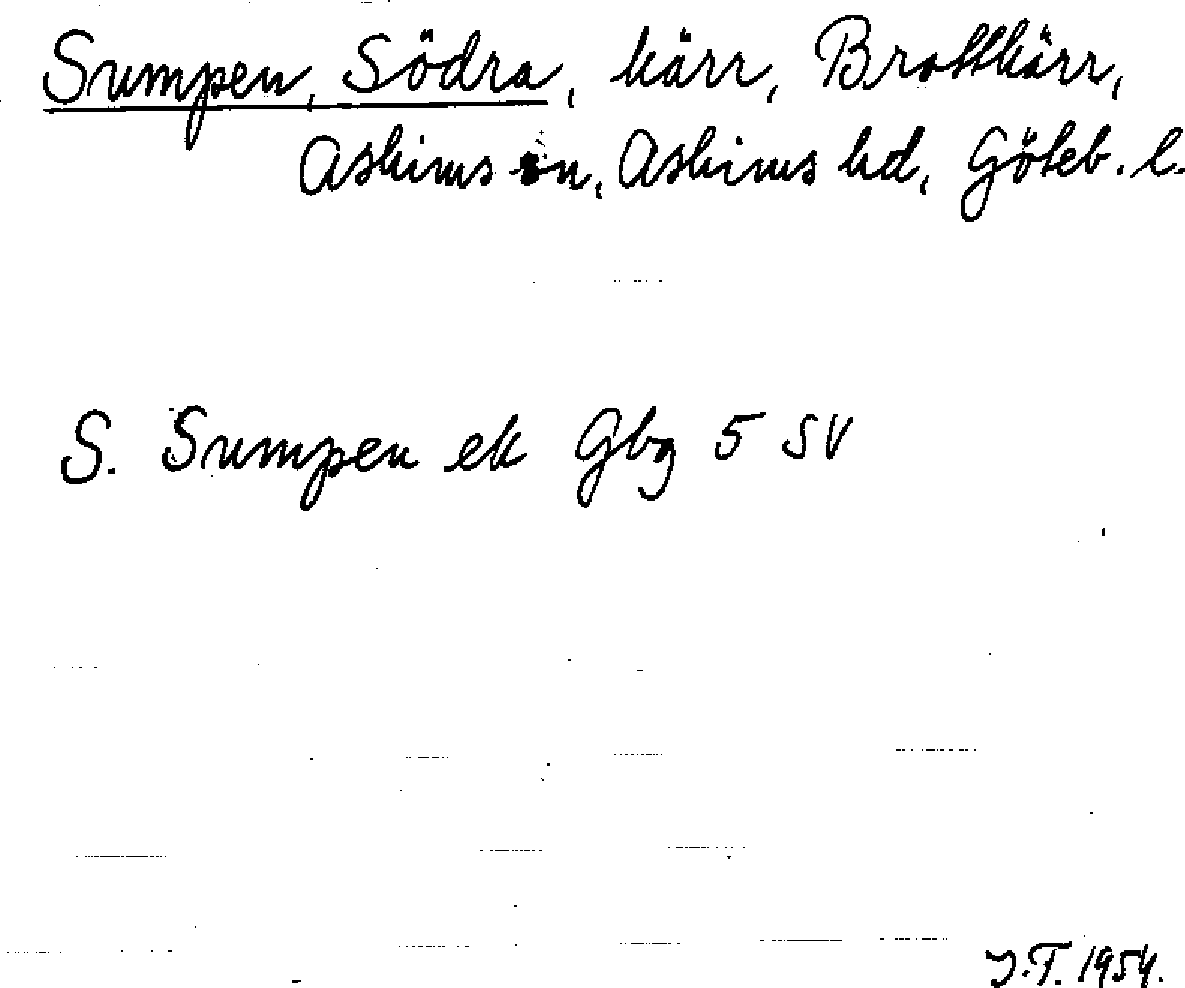 Sumpen, Södra, kärr, Brottkärr,
Askims sn, Askims hd, Göteb. l.
S. Sumpen ek Gbg 5 SV
J.T. 1954.